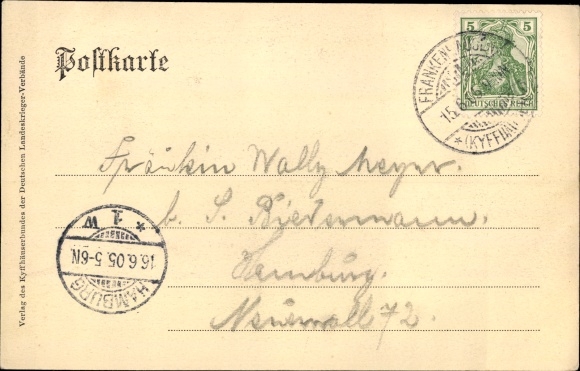 Postkarte
5 5
DEUTSCHES REICH
FRANKENHAUSEN
15.6.05
* (KYFFH
Fräulein Wally Meyer.
b. S. Biedermann.
Hamburg.
Neuerwall 72.
* 1 W
16.6.05.5-6N.
HAMBURG
Verlag des Kyffhäuserbundes der Deutschen Landeskrieger-Verbände